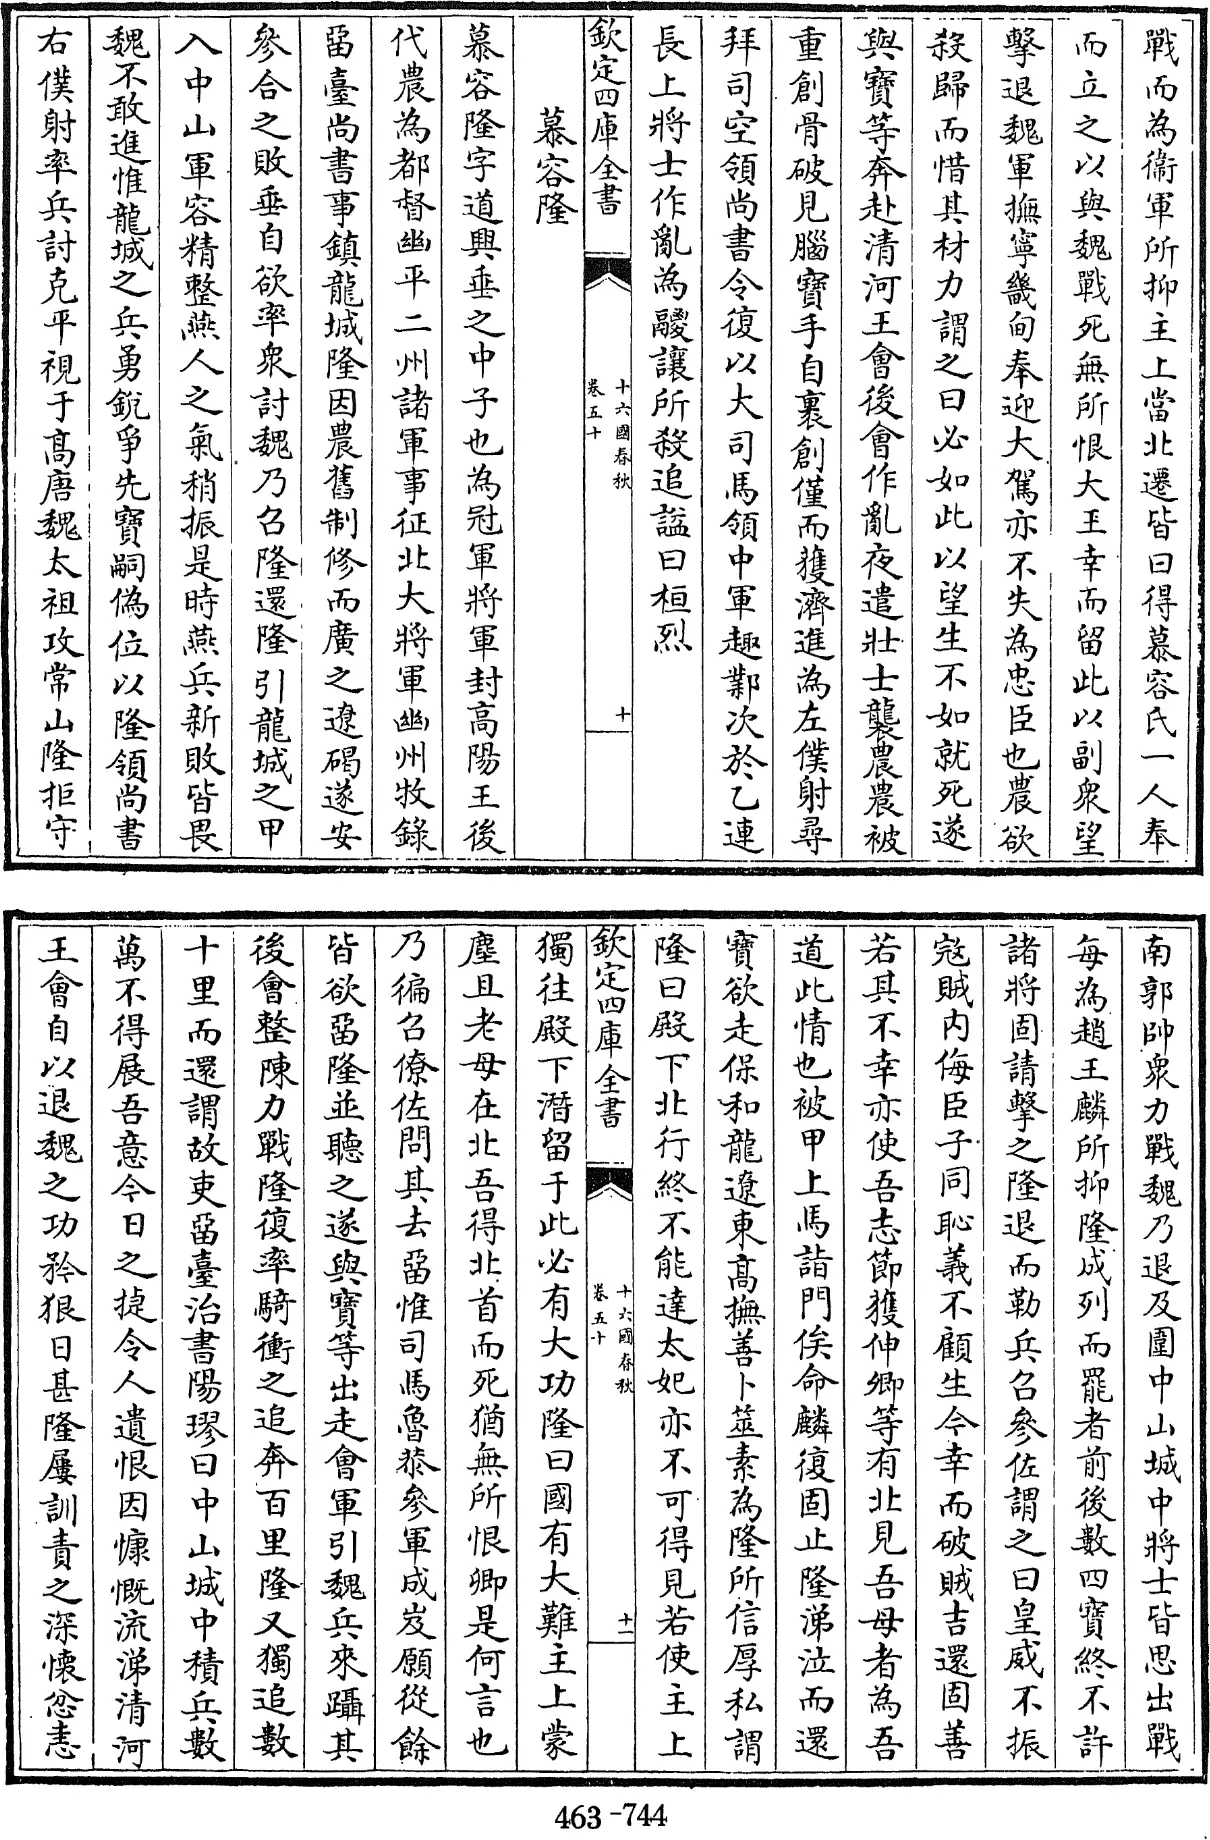 戰而為衞軍所抑主上當北遷皆曰得慕容氏一人奉
而立之以與魏戰死無所恨大王幸而留此以副衆望
擊退魏軍撫寧畿甸奉迎大駕亦不失為忠臣也農欲
殺歸而惜其材力謂之曰必如此以望生不如就死遂
與寳等奔赴清河王會後會作亂夜遣壯士襲農農被
重創骨破見腦寳手自裹創僅而獲濟進為左僕射尋
拜司空領尚書令復以大司馬領中軍趣鄴次於乙連
長上將士作亂為騣讓所殺追諡曰桓烈
欽定四庫全書
十六國春秋
卷五十
十
慕容隆
慕容隆字道興垂之中子也為冠軍將軍封高陽王後
代農為都督幽平二州諸軍事征北大將軍幽州牧錄
畱臺尚書事鎮龍城隆因農舊制修而廣之遼碣遂安
參合之敗垂自欲率衆討魏乃召隆還隆引龍城之甲
入中山軍容精整燕人之氣稍振是時燕兵新敗皆畏
魏不敢進惟龍城之兵勇銳爭先寳嗣偽位以隆領尚書
右僕射率兵討克平視于髙唐魏太祖攻常山隆拒守
南郭帥衆力戰魏乃退及圍中山城中將士皆思出戰
每為趙王麟所抑隆成列而罷者前後數四寳終不許
諸將固請擊之隆退而勒兵召參佐謂之曰皇威不振
宼賊内侮臣子同恥義不顧生今幸而破賊吉還固善
若其不幸亦使吾志節獲伸卿等有北見吾母者為吾
道此情也被甲上馬詣門俟命麟復固止隆涕泣而還
寳欲走保和龍遼東髙撫善卜筮素為隆所信厚私謂
隆曰殿下北行終不能達太妃亦不可得見若使主上
欽定四庫全書
十六國春秋
卷五十
十一
獨往殿下潛留于此必有大功隆曰國有大難主上蒙
塵且老母在北吾得北首而死猶無所恨卿是何言也
乃徧召僚佐問其去畱惟司馬魯恭參軍成岌願從餘
皆欲畱隆並聽之遂與寳等出走會軍引魏兵來躡其
後會整陳力戰隆復率騎衝之追奔百里隆又獨追數
十里而還謂故吏畱臺治書陽璆曰中山城中積兵數
萬不得展吾意今日之捷令人遺恨因慷慨流涕清河
王會自以退魏之功矜狠日甚隆屢訓責之深懷忿恚
463-744